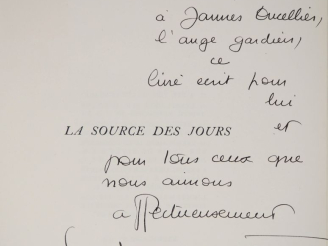 à Jannes Oucellier,
l'ange gardien,
ce
livre écrit pour
lui
et
LA SOURCE DES JOURS
pour tous ceux que
nous aimons
affectueusement